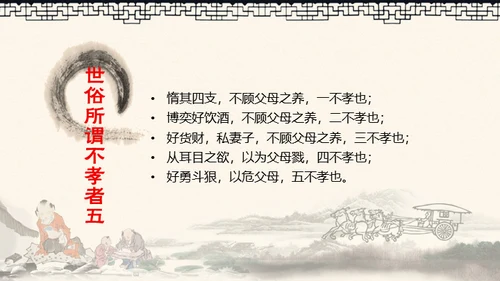 世俗所谓不孝者五
• 惰其四支，不顾父母之养，一不孝也；
• 博奕好饮酒，不顾父母之养，二不孝也；
• 好货财，私妻子，不顾父母之养，三不孝也；
• 从耳目之欲，以为父母戮，四不孝也；
• 好勇斗狠，以危父母，五不孝也。